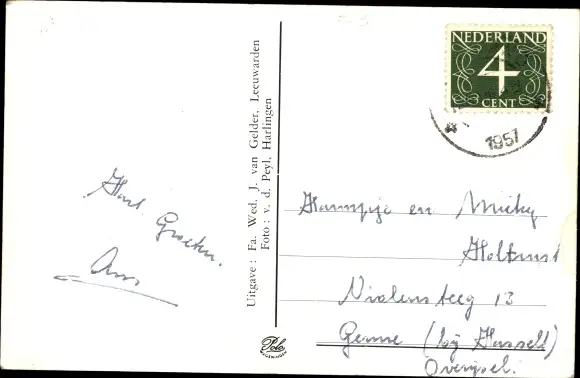 NEDERLAND
4
CENT
1957
Uitgave: Fa. Wed. J. van Gelder, Leeuwarden
Foto: v. d. Peyl, Harlingen
Hart. Groeten.
Ans
Harmpje en Micky
Holtrust
Violensteeg 13
Genne (bij Hasselt)
Overijsel.
Polo